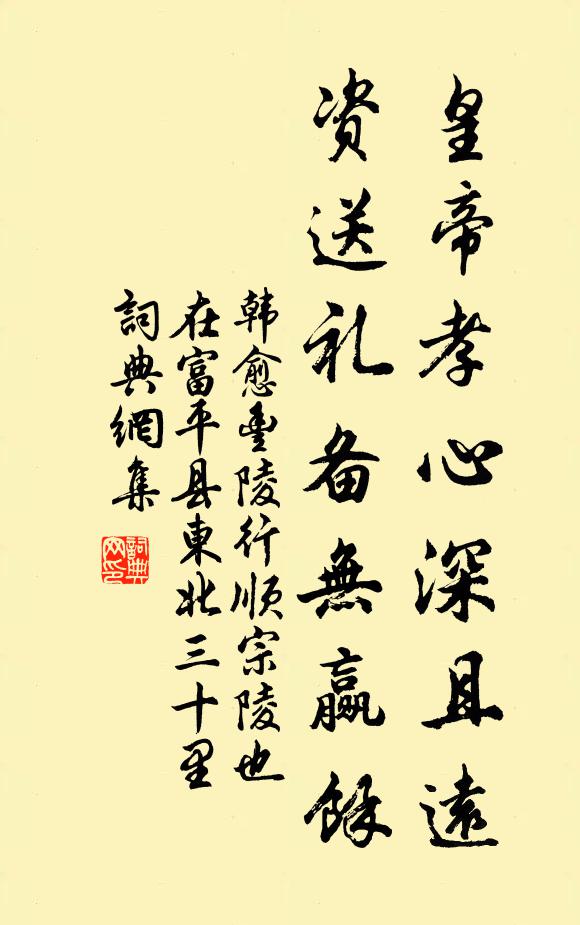 皇帝孝心深且遠
资送礼备無贏餘
韩愈豐陵行順宗陵也
在富平县東北三十里
詞典網集
詞典
网印